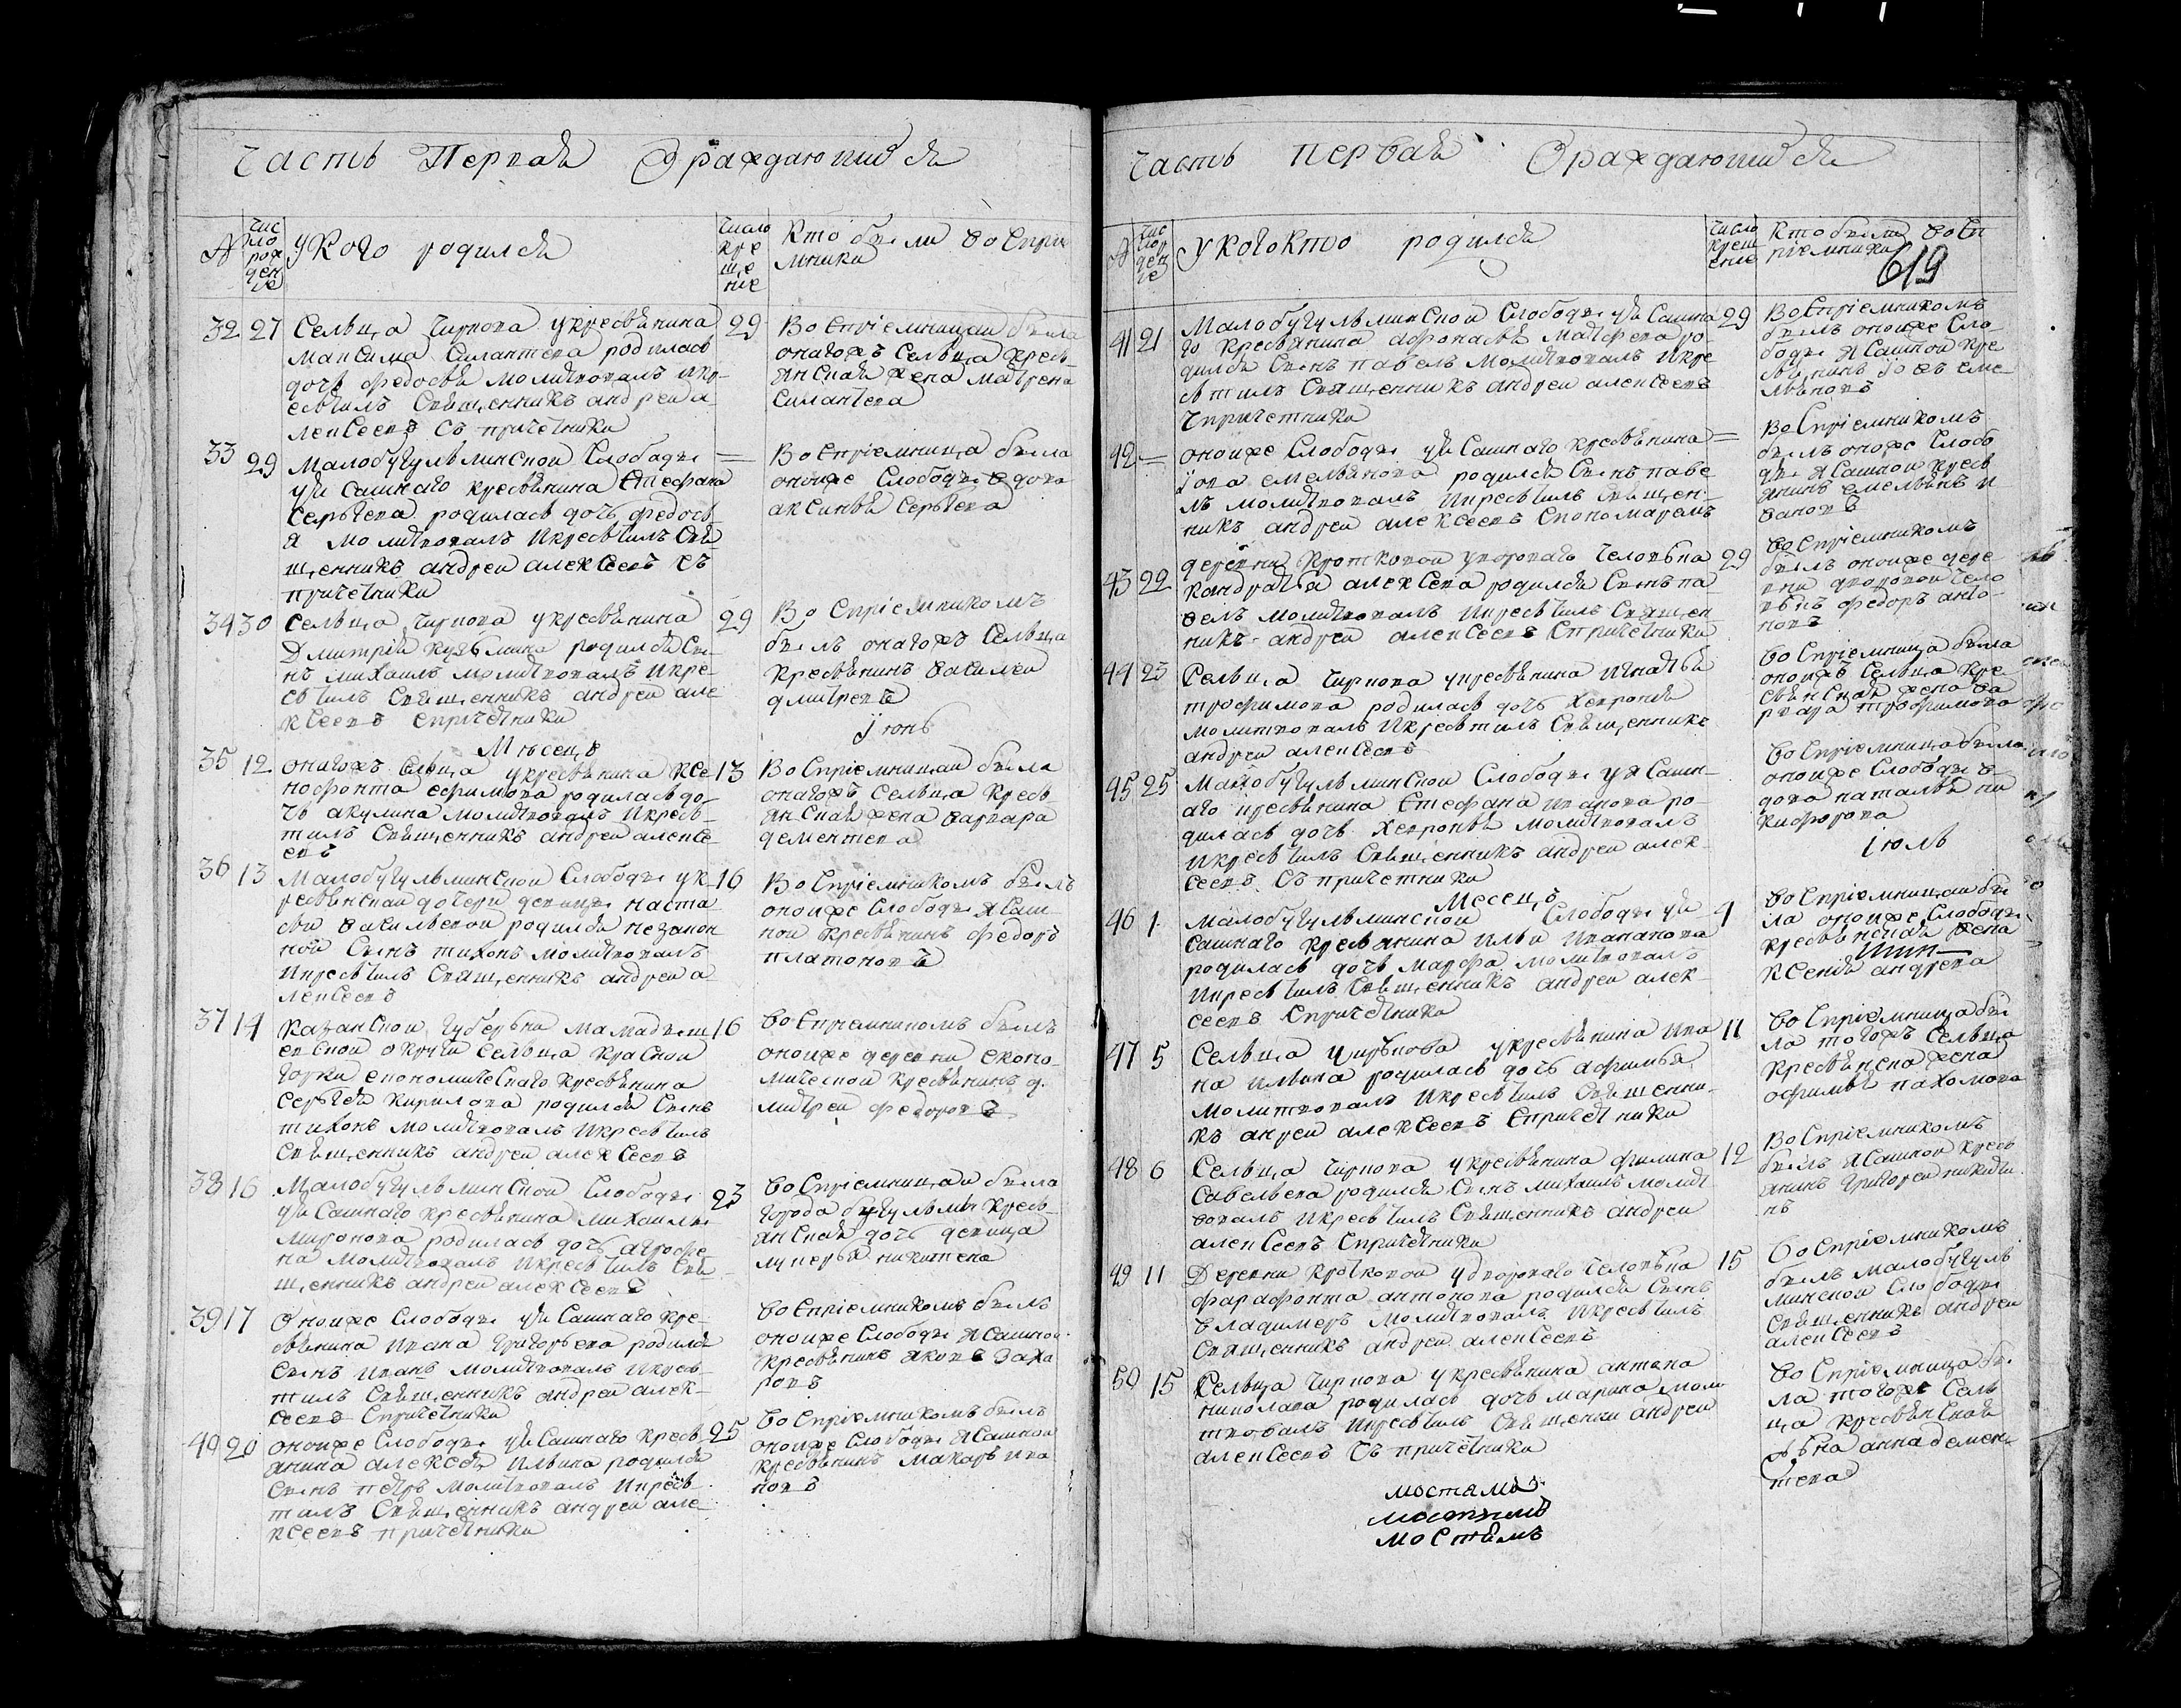 Часть Первая Ораждающихся
N
Чис
ло
рож
ден
ïе
У кого родился
Число
кре
ще
нïе
Кто были воспри
мники
32 27 Сельца Чиркова у крестьянина 29
Максима Силантева родилась
дочь Федосья молитвовалъ и кр
естилъ Священникъ андреи а
лексеевъ съ причетники
Восприемницаи была
онагожъ Сельца крест
янская жена матрена
Силантева
33 29 Малобугульминскои Слободы =
у ясашнаго крестьянина Стефана
Сергеева родилась дочь федось
я молитвовалъ и крестилъ Свя
щенникъ андреи алексеевъ съ
причетники
Восприемница была
оноиже Слободы вдова
аксинья Сергева
34 30 Сельца Чиркова у крестьянина 29
Дмитрия кузьмина родился Сы
нъ михаилъ молитвовалъ и кре
стилъ Священникъ андреи але
ксеевъ спричетники
Восприемникомъ
былъ онагожъ Сельца
крестьянинъ василеи
дмитревъ
Месецъ июнь
35 12 онагожъ Сельца у крестьянина ксе 13
нофонта ефимова родилась до
чь акулина молитвовалъ и крест
тилъ Священникъ андреи алексе
евъ
Восприемницаи была
онагожъ сельца крест
янская жена варвара
дементева
36 13 Малобугульминскои Слободы у к 16
рестьянскаи дочери девицы наста
сьи васильевои родился незакон
ной Сынъ тихонъ молитвовалъ
и крестилъ Священникъ андреи а
лексеевъ
Восприемникомъ былъ
оноиже Слободы ясаш
нои крестьянинъ федоръ
платоновъ
37 14 Казанскои губерьни мамадыш 16
евскои округи сельца красной
горки економическаго крестьянина
Сергея кирилова родился Сынъ
тихонъ молитвовалъ и крестилъ
Священникъ андреи алексеевъ
Восприемникомъ былъ
оноиже деревни еконо
мическои крестьянинъ д
митреи федоровъ
38 16 Малобугульминскои Слободы 23
у ясашнаго крестьянина михаилы
миронова родилась дочь агрофе
на молитвовалъ и крестилъ Свя
щенникъ андреи алексеевъ
Восприемницаи была
города бугульмы крест
янская дочь девица
лукерья никитена
39 17 Оноиже Слободы у ясашнаго кре
стьянина ивана григорьева родился
Сынъ иванъ молитвовалъ и крес
тилъ Священникъ андреи алек
сеевъ спричетники
Восприемникомъ былъ
оноиже Слободы ясашнои
крестьянинъ яковъ заха
ровъ
40 20 оноиже Слободы у ясашнаго крест 25
янина алексея ильина родился
Сынъ петръ молитвовалъ и крес
тилъ Священникъ андреи але
ксеевъ причетники
Восприемникомъ былъ
оноиже Слободы ясашнои
крестьянинъ макаръ ива
новъ
Часть первая Ораждающихся
N
Чис
лор
ден
ïе
У кого кто родился
Число
крещ
ение
Кто были восп
рïемники
619
41 21 Малобугульминскои Слободы у ясашна 29
го крестьянина афонасья матфева ро
дился Сынъ павелъ молитвовалъ и кре
стилъ Священникъ андреи алексеевъ
с причетники
Восприемникомъ
былъ оноиже Сло
боды ясашнои кре
стьянинъ иовъ еме
льяновъ
42 = оноиже Слободы у ясашнаго крестьянина =
иова емельянова родился Сынъ паве
лъ молитвовалъ и крестилъ Священ
никъ андреи алексеевъ спономаремъ
Восприемникомъ
былъ оноиже Слобо
ды ясашнои крест
янинъ емельянъ и
вановъ
43 22 деревни кротковои у двороваго человека 29
кондратья алексева родился Сынъ па
велъ молитвовалъ и крестилъ Священ
никъ андреи алексеевъ спричетники
Восприемникомъ
былъ оноиже дере
вни дворовои чело
векъ федоръ анто
новъ
44 23 Сельца Чиркова у крестьянина игнатья
трофимова родилась дочь хеврония
молитвовалъ и крестилъ Священникъ
андреи алексеевъ
Восприемница была
оножъ Сельца кре
стьянская жена ва
рвара трофимова
45 25 Малобугульминскои Слободы у ясашн
аго крестьянина Стефана иванова ро
дилась дочь хевронья молитвовалъ
и крестилъ Священникъ андреи алек
сеевъ съ причетники
Восприемница была
оноиже Слободы в
дова наталья ни
кифорова
Месецъ июль
46 1 малобугульминскои Слободы у я 4
сашнаго крестьянина ильи иванакова
родилась дочь марфа молитвовалъ
и крестилъ Священникъ андреи алек
сеевъ спричетники
Восприемницаи бы
ла оноиже Слободы
крестьянская жена
ксения андрева
47 5 Сельца Чиръкова у крестьянина ива 11
на ильина родилась дочь афимья
молитвовалъ и крестилъ Священни
къ андреи алексеевъ спричетники
Восприемница бы
ла тогожъ Сельца
крестьянска жена
афимья пахомова
48 6 Сельца Чиркова у крестьянина филипа 12
Савельева родился Сынъ михаилъ молит
вовалъ и крестилъ Священникъ андреи
алексеевъ спричетники
Восприемникомъ
былъ ясашнои крест
янинъ григореи никити
нъ
49 11 Деревни кротковои у двороваго человека 15
фарафонта антонова родился Сынъ
владимеръ молитвовалъ и крестилъ
Священникъ андреи алексеевъ
Восприемникомъ
былъ малобугуль
минскои Слободы
Священникъ андреи
алексеевъ
50 15 Сельца Чиркова у крестьянина антона
николава родилась дочь марина моли
твовалъ и крестилъ Священни андреи
алексеевъ съ причетники
Восприемница бы
ла тогоже Сель
ца крестьянская
анна демен
тева